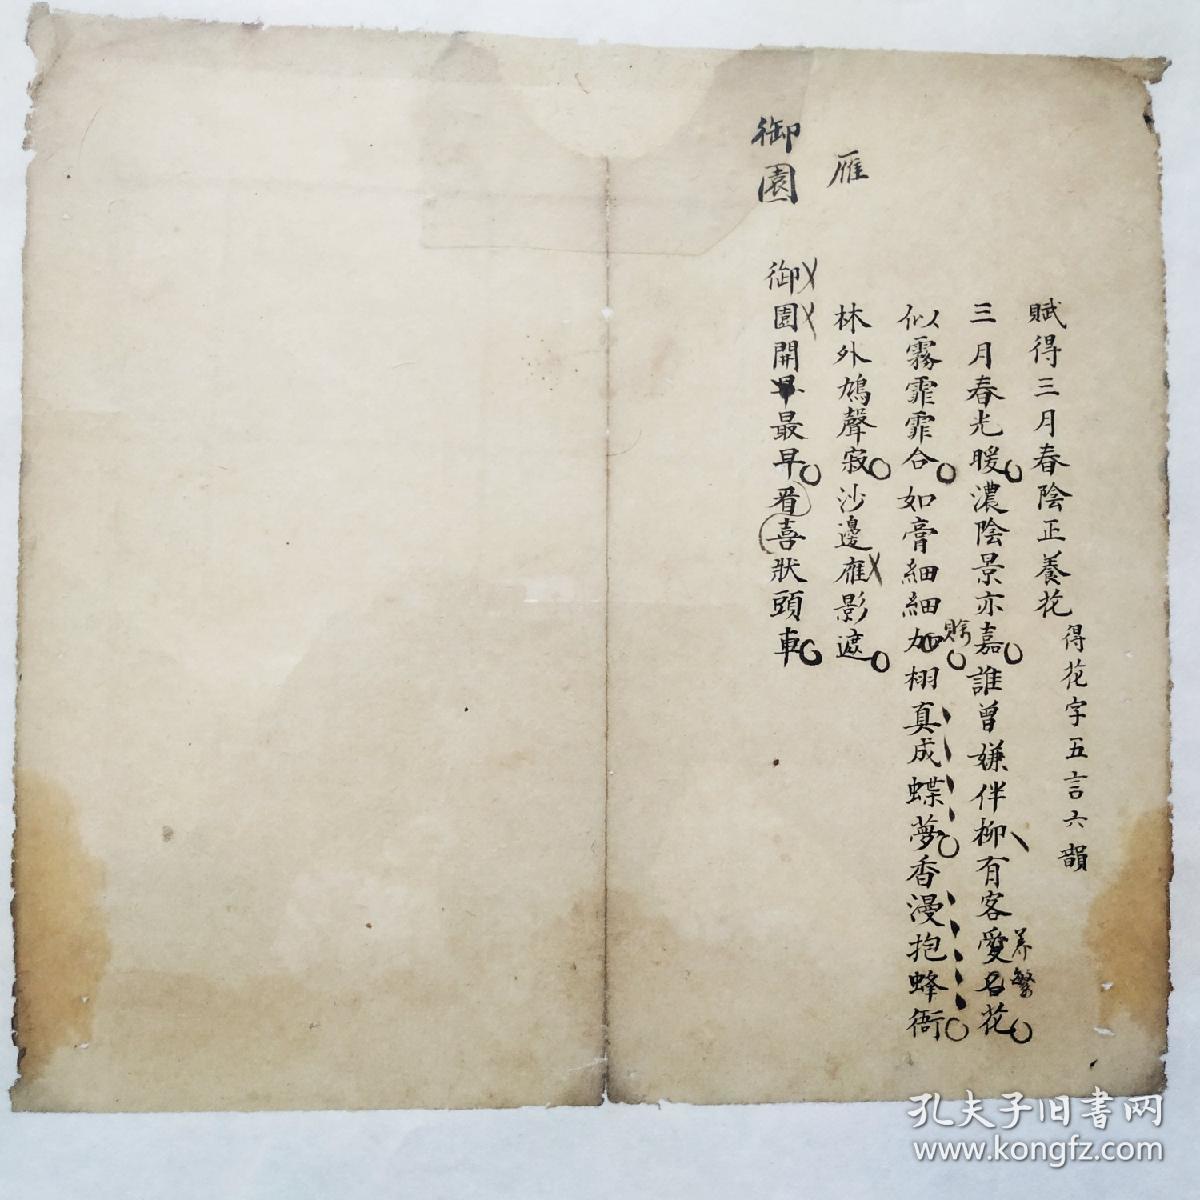 賦得三月春陰正養花 得花字五言六韻
三月春光暖濃陰景亦嘉誰曾嫌伴柳有客愛名花
养繁
似霧霏霏合如膏細細加栩真成蝶夢香漫抱蜂衙
賒
林外鳩聲寂沙邊雁影遮
雁
御園開早最早看喜狀頭車
御園
孔夫子旧书网
www.kongfz.com